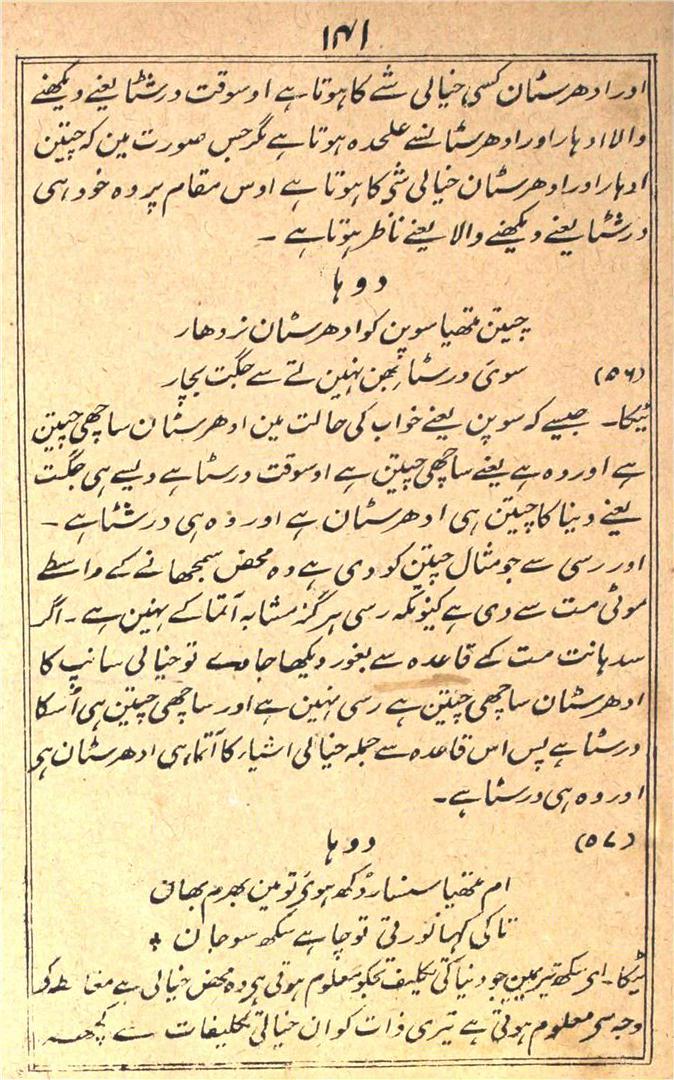 ۱۴۱
اور ادھرسٹان کسی خیالی شے کا ہوتا ہے اوسوقت درشٹا یعنے دیکھنے
والا ادہار اور ادھرسٹا نسے علحدہ ہوتا ہے مگر جس صورت مین کہ چیتن
ادہار اور ادھرسٹان خیالی شی کا ہوتا ہے اوس مقام پر وہ خود ہی
درشٹا یعنے دیکھنے والا یعنے ناظر ہوتا ہے ۔
دوہا
چیتن متھیا سوپن کو ادھرسٹان نردھار
(۵۶) سوئ درسٹا بھن نہین تے سے جگت بچار
ٹیکا۔ جیسے کہ سوپن یعنے خواب کی حالت مین ادھرسٹان ساچھی چیتن
ہے اور وہ ہے یعنے ساچھی چیتن ہے اوسوقت درسٹا ہے ویسے ہی جگت
یعنے دینا کا چیتن ہی ادھرسٹان ہے اور وہ ہی درشٹا ہے ۔
اور رسی سے جو مثال چیتن کو دی ہے وہ محض سمجھانے کے واسطے
موٹی مت سے دی ہے کیونکہ رسی ہرگز مشابہ آتما کے نہین ہے ۔ اگر
سدہانت مت کے قاعدہ سے بغور دیکھا جاوے تو خیالی سانپ کا
ادھرسٹان ساچھی چیتن ہے رسی نہین ہے اور ساچھی چیتن ہی اُسکا
درسٹا ہے پس اس قاعدہ سے جملہ خیالی اشیار کا آتما ہی ادھرسٹان ہی
اور وہ ہی درسٹا ہے ۔
(۵۷) دوہا
ام متھیا سنسار دُکھ ہوئ تو مین بھرم بھان
تاکی کہا نورتی تو چاہے سکھ سوجان *
ٹیکا۔ ای سکھ تیریمین جو دنیا کی تکلیف تجکو معلوم ہوتی ہی وہ محض خیالی ہے مغالطہ کی
وجہ سی معلوم ہوتی ہے تیری ذات کو ان خیالی تکلیفات سے کچھہ